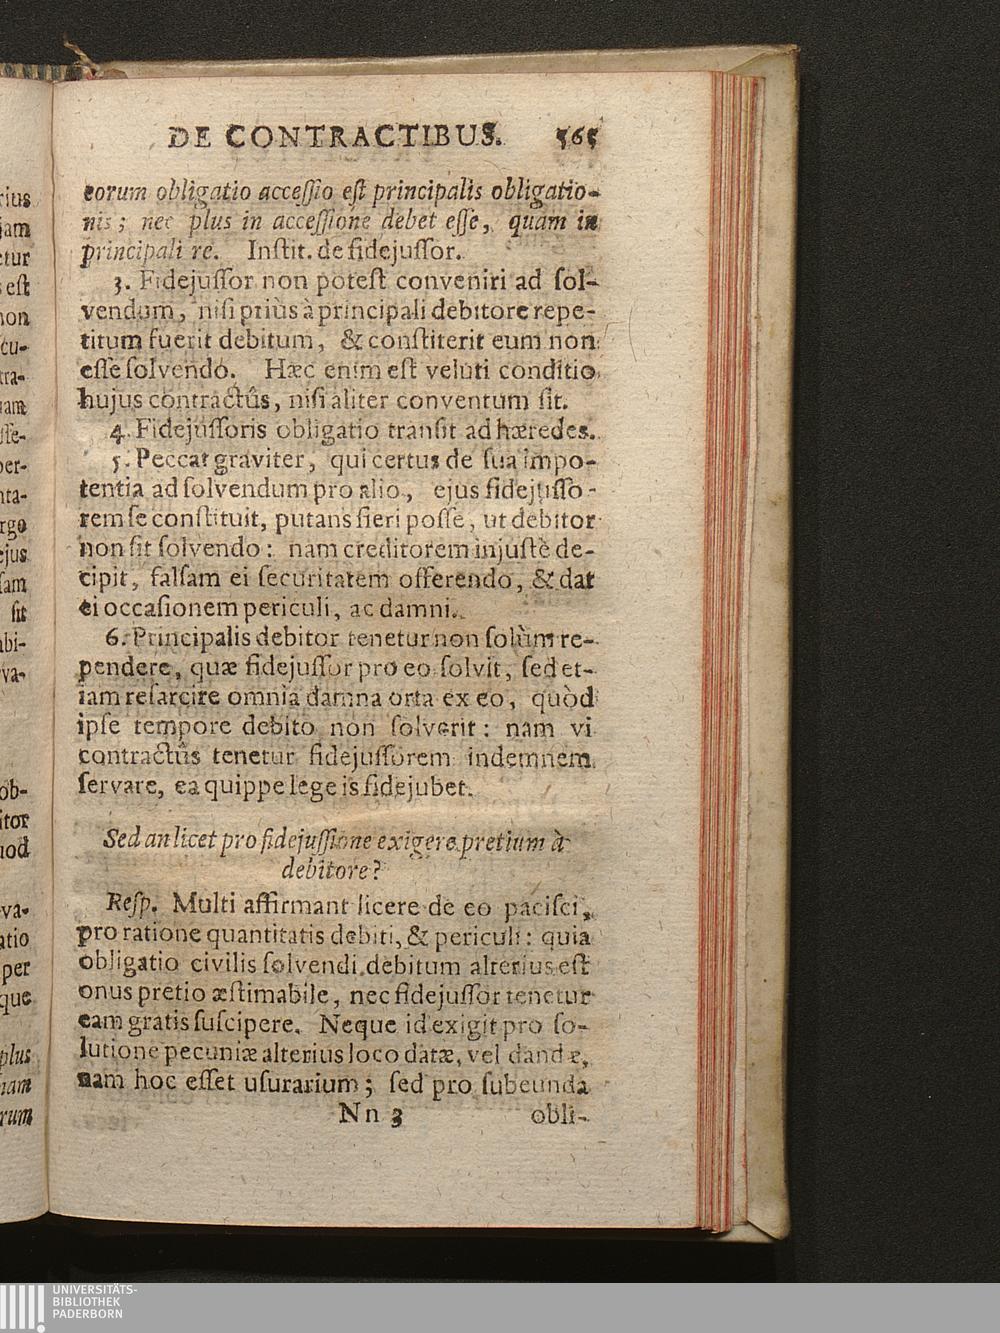 DE CONTRACTIBUS. 565
eorum obligatio accessio est principalis obligatio-
nis; nec plus in accessione debet esse, quàm in
principali re. Instit. de fidejussor.
3. Fidejussor non potest conveniri ad sol-
vendum, nisi priùs à principali debitore repe-
titum fuerit debitum, & constiterit eum non
esse solvendo. Hæc enim est veluti conditio
hujus contractûs, nisi aliter conventum sit.
4. Fidejussoris obligatio transit ad hæredes.
5. Peccat graviter, qui certus de sua impo-
tentia ad solvendum pro alio, ejus fidejusso-
rem se constituit, putans fieri posse, ut debitor
non sit solvendo: nam creditorem injustè de-
cipit, falsam ei securitatem offerendo, & dat
ei occasionem periculi, ac damni.
6. Principalis debitor tenetur non solùm re-
pendere, quæ fidejussor pro eo solvit, sed et-
iam resarcire omnia damna orta ex eo, quòd
ipse tempore debito non solverit: nam vi
contractûs tenetur fidejussorem indemnem
servare, ea quippe lege is fidejubet.
Sed an licet pro fidejussione exigere pretium à
debitore?
Resp. Multi affirmant licere de eo pacisci,
pro ratione quantitatis debiti, & periculi: quia
obligatio civilis solvendi debitum alterius est
onus pretio æstimabile, nec fidejussor tenetur
eam gratis suscipere. Neque id exigit pro so-
lutione pecuniæ alterius loco datæ, vel dandæ,
nam hoc esset usurarium; sed pro subeunda
Nn 3 obli-
UNIVERSITÄTS-
BIBLIOTHEK
PADERBORN